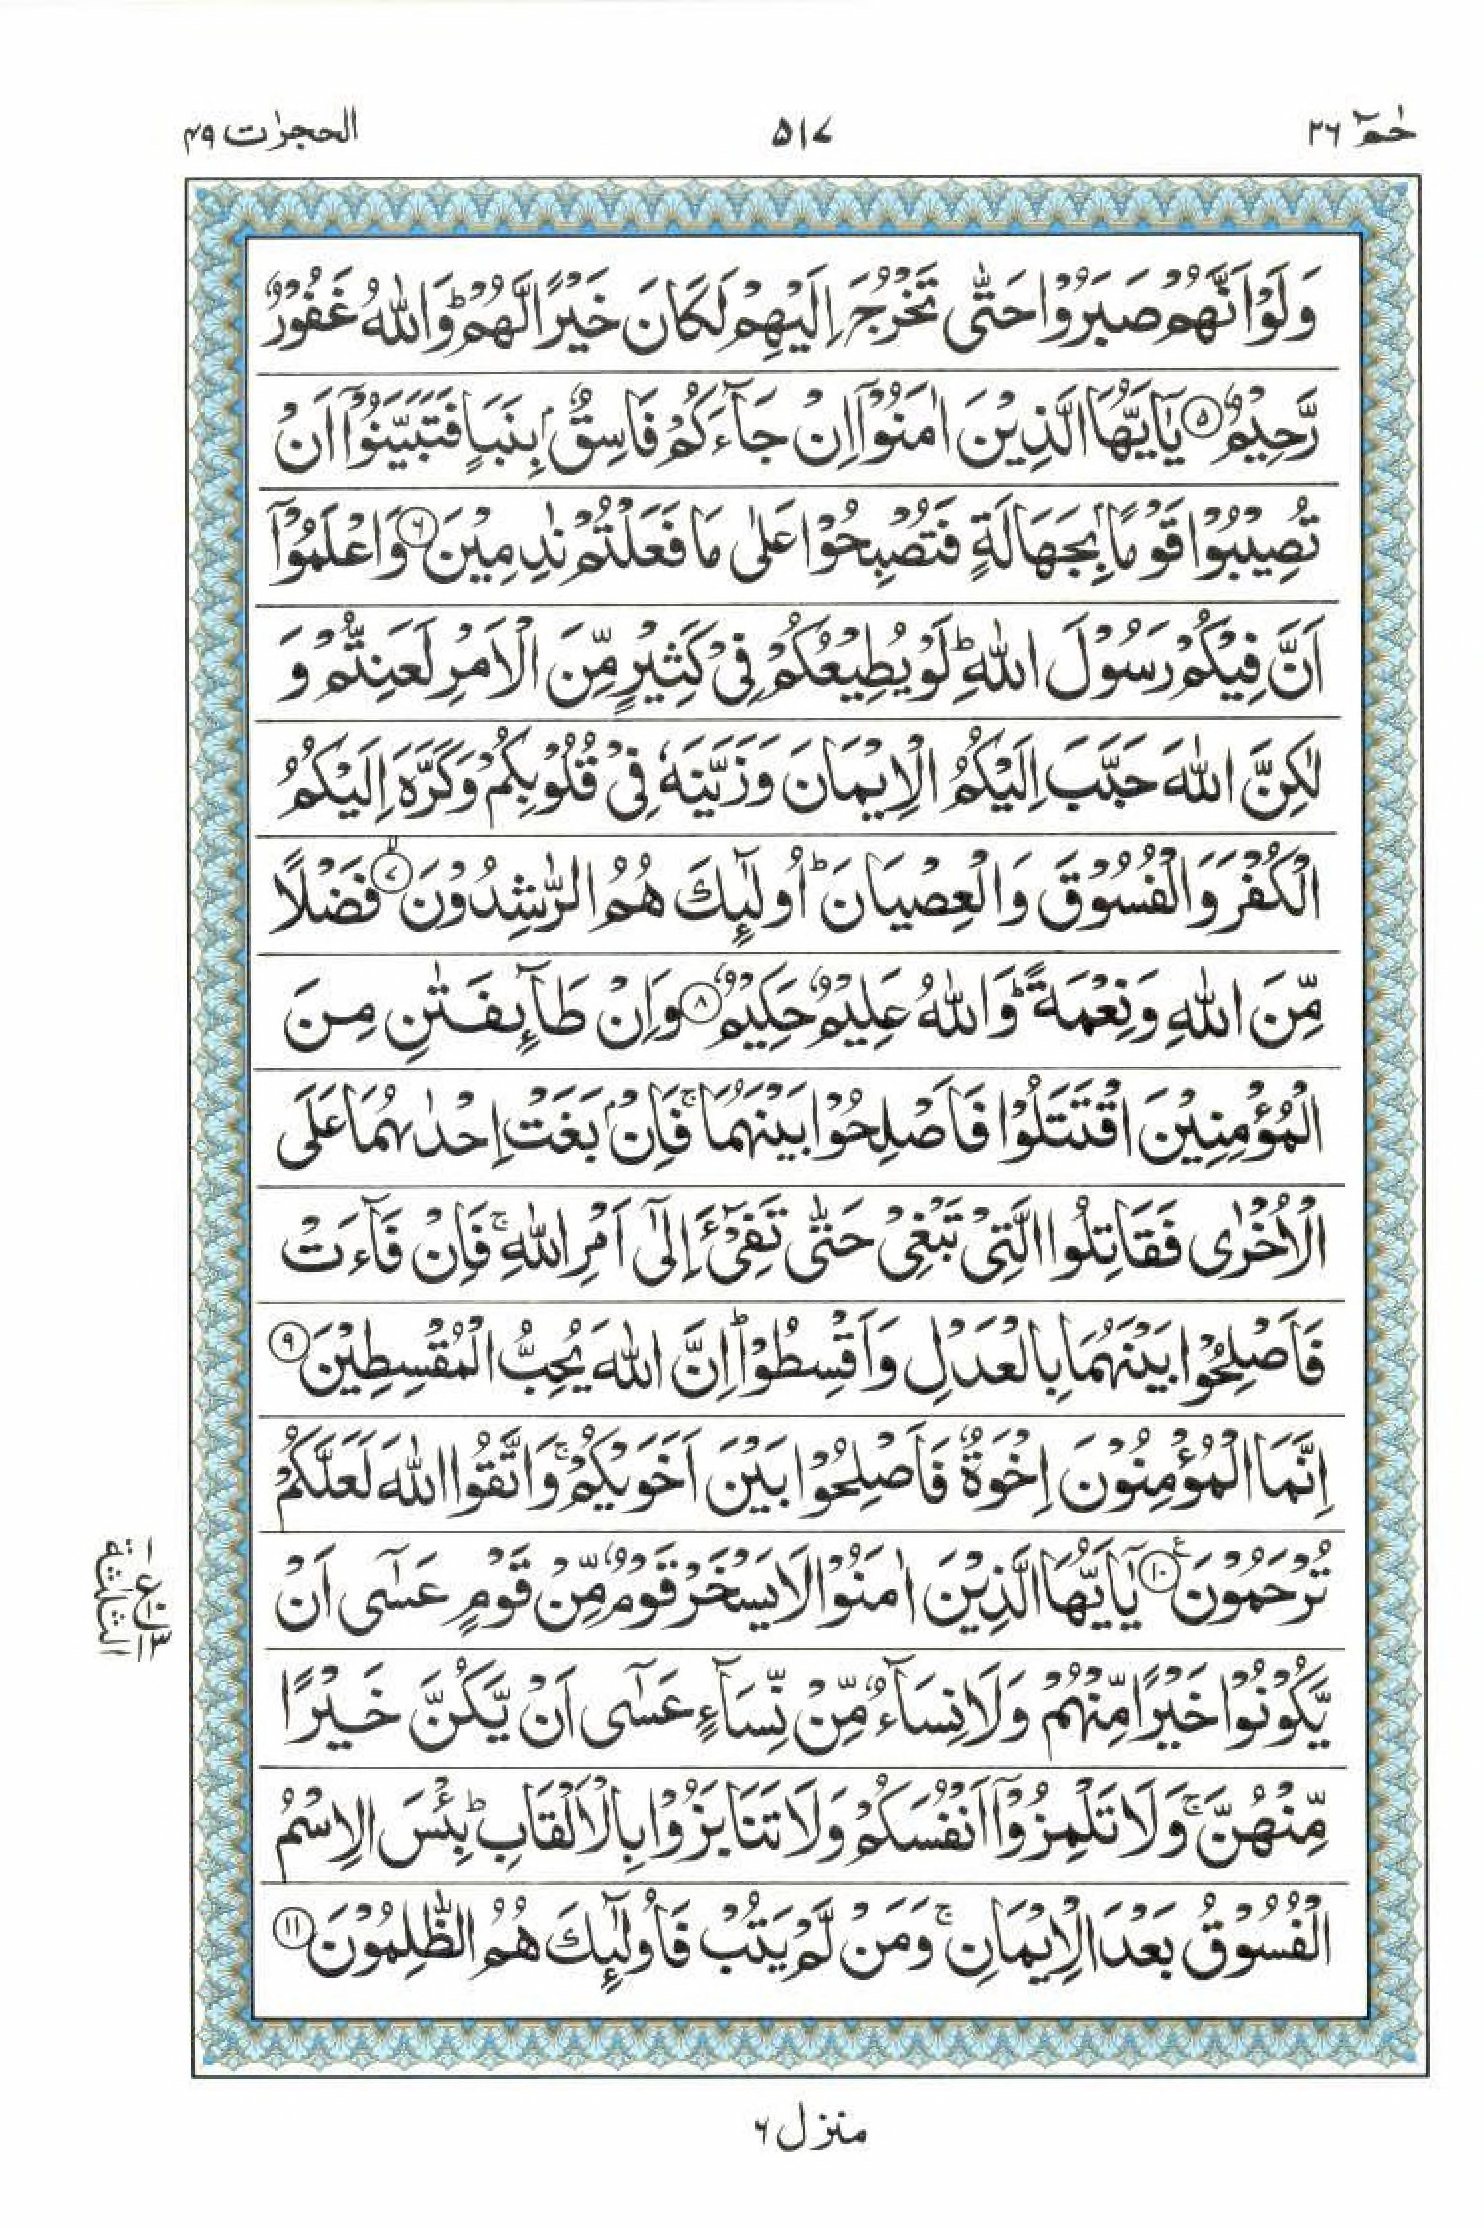 حٰمٓ ٢٦
٥١٧
الحجرٰت ٤٩
وَلَوْ اَنَّهُمْ صَبَرُوْا حَتّٰى تَخْرُجَ اِلَيْهِمْ لَكَانَ خَيْرًا لَّهُمْ ؕ وَاللّٰهُ غَفُوْرٌ
رَّحِيْمٌ ﴿٥﴾ يٰۤاَيُّهَا الَّذِيْنَ اٰمَنُوْۤا اِنْ جَآءَكُمْ فَاسِقٌۢ بِنَبَاٍ فَتَبَيَّنُوْۤا اَنْ
تُصِيْبُوْا قَوْمًۢا بِجَهَالَةٍ فَتُصْبِحُوْا عَلٰى مَا فَعَلْتُمْ نٰدِمِيْنَ ﴿٦﴾ وَاعْلَمُوْۤا
اَنَّ فِيْكُمْ رَسُوْلَ اللّٰهِ ؕ لَوْ يُطِيْعُكُمْ فِيْ كَثِيْرٍ مِّنَ الْاَمْرِ لَعَنِتُّمْ وَ
لٰكِنَّ اللّٰهَ حَبَّبَ اِلَيْكُمُ الْاِيْمَانَ وَزَيَّنَهٗ فِيْ قُلُوْبِكُمْ وَكَرَّهَ اِلَيْكُمُ
الْكُفْرَ وَالْفُسُوْقَ وَالْعِصْيَانَ ؕ اُولٰٓئِكَ هُمُ الرّٰشِدُوْنَ ﴿٧﴾ۙ فَضْلًا
مِّنَ اللّٰهِ وَنِعْمَةً ؕ وَاللّٰهُ عَلِيْمٌ حَكِيْمٌ ﴿٨﴾ وَاِنْ طَآئِفَتٰنِ مِنَ
الْمُؤْمِنِيْنَ اقْتَتَلُوْا فَاَصْلِحُوْا بَيْنَهُمَا ۚ فَاِنْۢ بَغَتْ اِحْدٰىهُمَا عَلَى
الْاُخْرٰى فَقَاتِلُوا الَّتِيْ تَبْغِيْ حَتّٰى تَفِيْٓءَ اِلٰۤى اَمْرِ اللّٰهِ ۚ فَاِنْ فَآءَتْ
فَاَصْلِحُوْا بَيْنَهُمَا بِالْعَدْلِ وَاَقْسِطُوْا ؕ اِنَّ اللّٰهَ يُحِبُّ الْمُقْسِطِيْنَ ﴿٩﴾
اِنَّمَا الْمُؤْمِنُوْنَ اِخْوَةٌ فَاَصْلِحُوْا بَيْنَ اَخَوَيْكُمْ ۚ وَاتَّقُوا اللّٰهَ لَعَلَّكُمْ
تُرْحَمُوْنَ ﴿١٠﴾ يٰۤاَيُّهَا الَّذِيْنَ اٰمَنُوْا لَا يَسْخَرْ قَوْمٌ مِّنْ قَوْمٍ عَسٰۤى اَنْ
يَّكُوْنُوْا خَيْرًا مِّنْهُمْ وَلَا نِسَآءٌ مِّنْ نِّسَآءٍ عَسٰۤى اَنْ يَّكُنَّ خَيْرًا
مِّنْهُنَّ ۚ وَلَا تَلْمِزُوْۤا اَنْفُسَكُمْ وَلَا تَنَابَزُوْا بِالْاَلْقَابِ ؕ بِئْسَ الِاسْمُ
الْفُسُوْقُ بَعْدَ الْاِيْمَانِ ۚ وَمَنْ لَّمْ يَتُبْ فَاُولٰٓئِكَ هُمُ الظّٰلِمُوْنَ ﴿١١﴾
الثلٰثة
منزل ٦